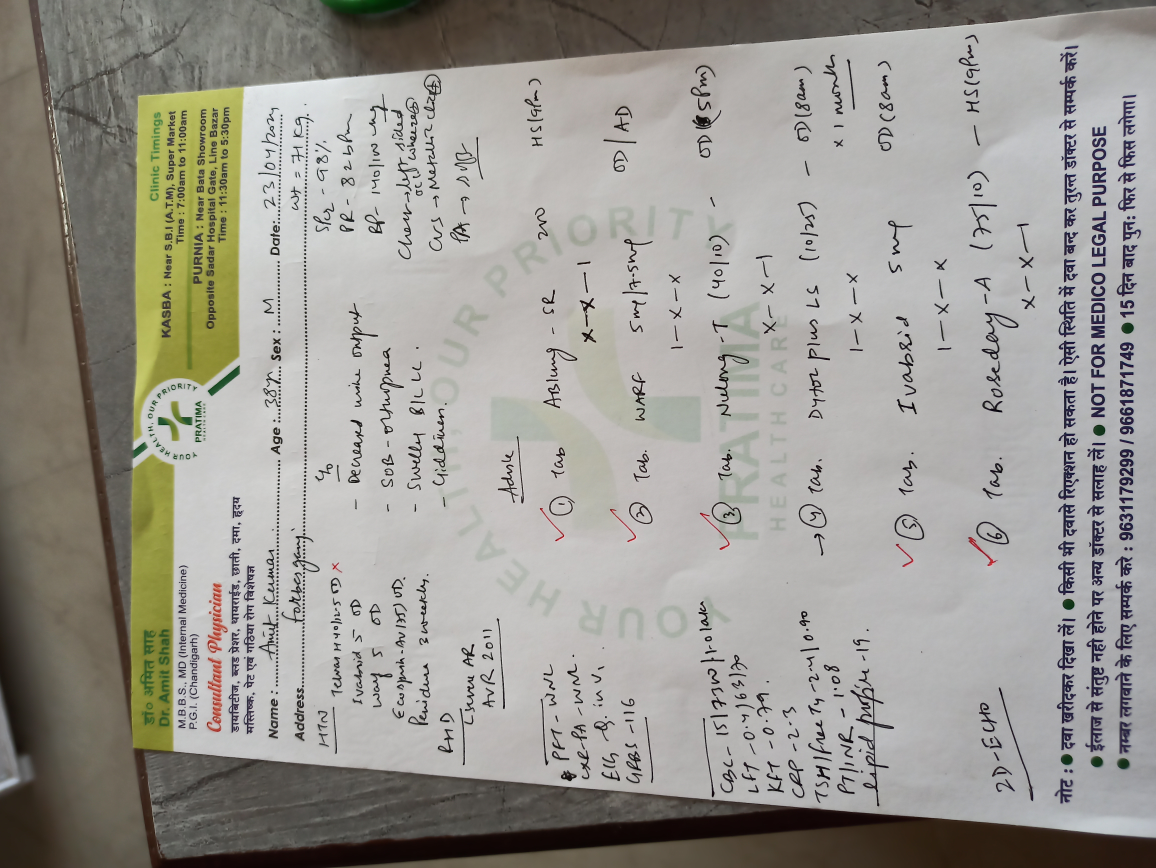 डा० अमित साह
Dr. Amit Shah
M.B.B.S., MD (Internal Medicine)
P.G.I. (Chandigarh)
Consultant Physician
डायबिटीज, ब्लड प्रेशर, थायराईड, छाती, दमा, हृदय
मस्तिष्क, पेट एवं गठिया रोग विशेषज्ञ
YOUR HEALTH, OUR PRIORITY
PRATIMA
HEALTHCARE
Clinic Timings
KASBA : Near S.B.I (A.T.M), Super Market
Time : 7:00am to 11:00am
PURNIA : Near Bata Showroom
Opposite Sadar Hospital Gate, Line Bazar
Time : 11:30am to 5:30pm
Name : Amit Kumar Age : 38yr Sex : M Date: 23/04/2024
Address Forbesganj wt = 71 kg.
HTN
H 40/12.5 OD X
Ivabrid 5 OD
5 OD
Ecosprin-AV (75) OD
Penidure 3 weekly.
RHD
Severe AR
AVR 2011
c/o
- Decreased urine output
- SOB - orthopnea
- Swelling B/L LL.
- Giddiness.
SpO2 - 98%
PR - 82 bpm
BP - 140/100
Chest - left sided
wheeze +
CVS → Metallic click +
P/A → soft
PFT - WNL
CXR-PA - WNL.
GRBS - 116
CBC - 15/7300/1.0 lakh
LFT - 0.4/63/70
KFT - 0.79.
CRP - 2.3
TSH/free T4 - 2.4/0.90
PT/INR - 1.08
Lipid profile - 19.
2D-ECHO
Advice
① Tab Aslung - SR 200 HS (9pm)
x-x-1
② Tab. WARF 5mg/7.5mg OD/AD
1-x-x
③ Tab. Nulong-T (40/10) - OD (5pm)
x-x-1
→ ④ Tab. Dytor plus LS (10/25) - OD (8am)
1-x-x x 1 month
⑤ Tab. Ivabrid 5mg OD (8am)
1-x-x
⑥ Tab. Roseday-A (75/10) - HS (9pm)
x-x-1
YOUR HEALTH, OUR PRIORITY
PRATIMA
HEALTH CARE
नोट : ● दवा खरीदकर दिखा लें। ● किसी भी दवासे रिएक्शन हो सकता है। ऐसी स्थिति में दवा बन्द कर तुरन्त डॉक्टर से सम्पर्क करें।
● ईलाज से संतुष्ट नही होने पर अन्य डॉक्टर से सलाह लें। ● NOT FOR MEDICO LEGAL PURPOSE
● नम्बर लगवाने के लिए सम्पर्क करे : 9631179299 / 9661871749 ● 15 दिन बाद पुनः फिर से फिस लगेगा।